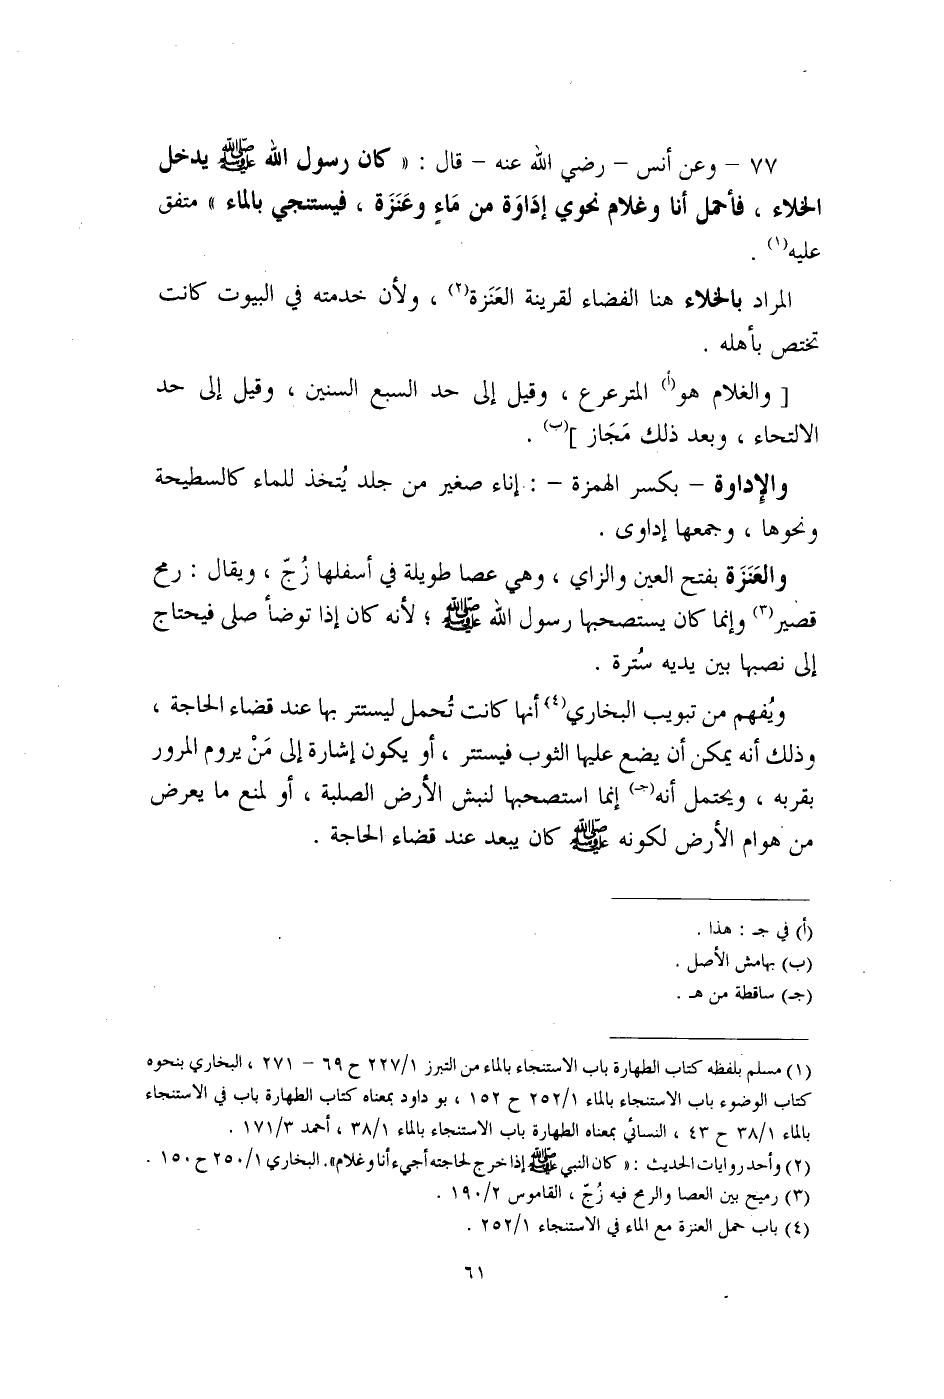 ٧٧ – وعن أنس – رضي الله عنه – قال : « كان رسول الله ﷺ يدخل
الخلاء ، فأحمل أنا وغلام نحوي إدَاوَة من مَاءٍ وعَنَزَة ، فيستنجي بالماء » متفق
عليه(١) .
المراد بالخلاء هنا الفضاء لقرينة العَنَزة(٢) ، ولأن خدمته في البيوت كانت
تختص بأهله .
[ والغلام هو(أ) المترعرع ، وقيل إلى حد السبع السنين ، وقيل إلى حد
الالتحاء ، وبعد ذلك مَجَاز ](ب) .
والإداوة – بكسر الهمزة – : إناء صغير من جلد يُتخذ للماء كالسطيحة
ونحوها ، وجمعها إداوى .
والعَنَزَة بفتح العين والزاي ، وهي عصا طويلة في أسفلها زُجّ ، ويقال : رمح
قصير(٣) وإنما كان يستصحبها رسول الله ﷺ ؛ لأنه كان إذا توضأ صلى فيحتاج
إلى نصبها بين يديه سُترة .
ويُفهم من تبويب البخاري(٤) أنها كانت تُحمل ليستتر بها عند قضاء الحاجة ،
وذلك أنه يمكن أن يضع عليها الثوب فيستتر ، أو يكون إشارة إلى مَنْ يروم المرور
بقربه ، ويحتمل أنه(جـ) إنما استصحبها لنبش الأرض الصلبة ، أو لمنع ما يعرض
من هوام الأرض لكونه ﷺ كان يبعد عند قضاء الحاجة .
(أ) في جـ : هذا .
(ب) بهامش الأصل .
(جـ) ساقطة من هـ .
(١) مسلم بلفظه كتاب الطهارة باب الاستنجاء بالماء من التبرز ٢٢٧/١ ح ٦٩ – ٢٧١ ، البخاري بنحوه
كتاب الوضوء باب الاستنجاء بالماء ٢٥٢/١ ح ١٥٢ ، بو داود بمعناه كتاب الطهارة باب في الاستنجاء
بالماء ٣٨/١ ح ٤٣ ، النسائي بمعناه الطهارة باب الاستنجاء بالماء ٣٨/١ ، أحمد ١٧١/٣ .
(٢) وأحد روايات الحديث : « كان النبي ﷺ إذا خرج لحاجته أجيء أنا وغلام». البخاري ٢٥٠/١ ح ١٥٠ .
(٣) رميح بين العصا والرمح فيه زُجّ ، القاموس ١٩٠/٢ .
(٤) باب حمل العنزة مع الماء في الاستنجاء ٢٥٢/١ .
٦١